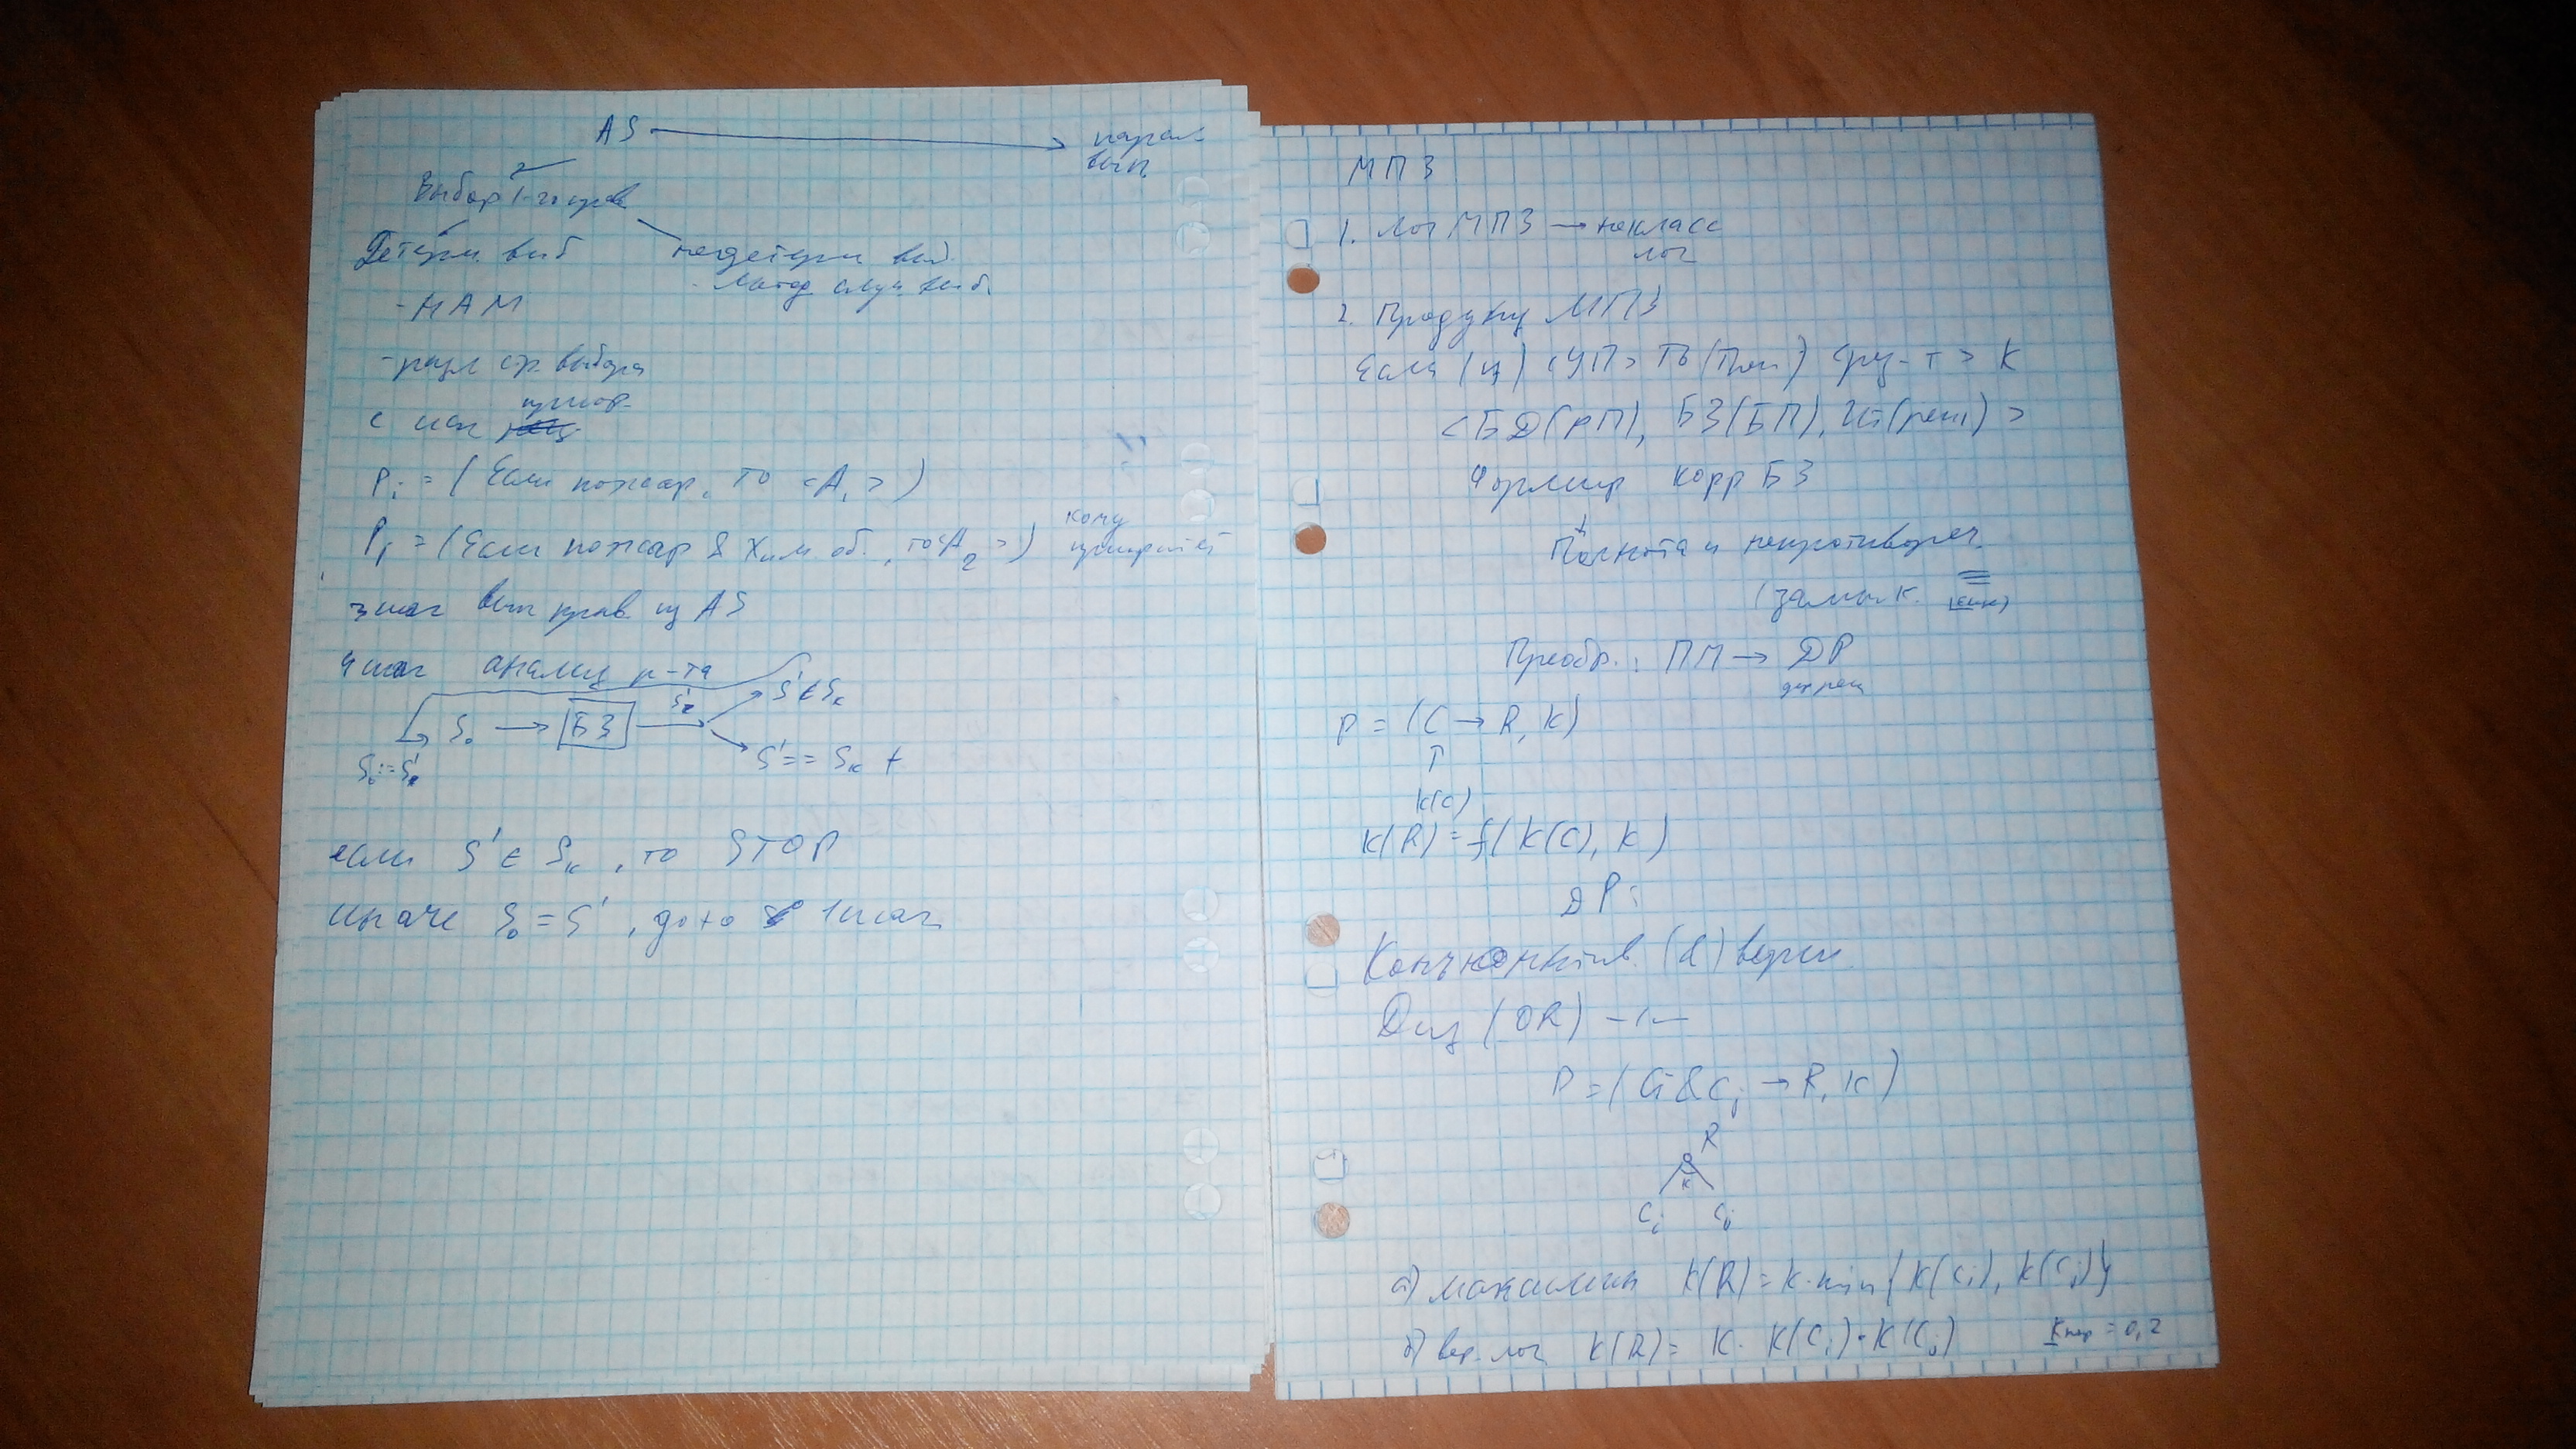 AS → парал
вып
Выбор 1-го прав
Детерм. выб
недетерм выб.
- Метод случ. выб.
- НАМ
- разл стр. выбора
приор.
P_i = (Если пожар, то <A_1>)
P_j = (Если пожар & хим об., то <A_2>) кому приоритет
3 шаг вып прав. из AS
4 шаг анализ р-та
S_0 → БЗ →
S' ∈ S_k
S' == S_k +
если S' ∈ S_k, то STOP
иначе S_0 = S', 1 шаг
МПЗ
1. Лог МПЗ → некласс
лог
2. Продукц МПЗ
Если (ц) <УП> ТО (Посл) K
<БД(РП), БЗ(БП), (реш)>
Формир корр БЗ
Полнота и непротивореч.
(замык.
Преобр.: ПМ → ДР
P = (C → R, K)
K(C)
K(R) = f(K(C), K)
ДР:
Конъюнктив. (&) верш.
Диз (OR) -"-
P = (Ci & Cj → R, K)
R
K
Ci Cj
а) максимин K(R) = K·min{K(Ci), K(Cj)}
б) вер. лог K(R) = K·K(Ci)·K(Cj) Kпор = 0,2